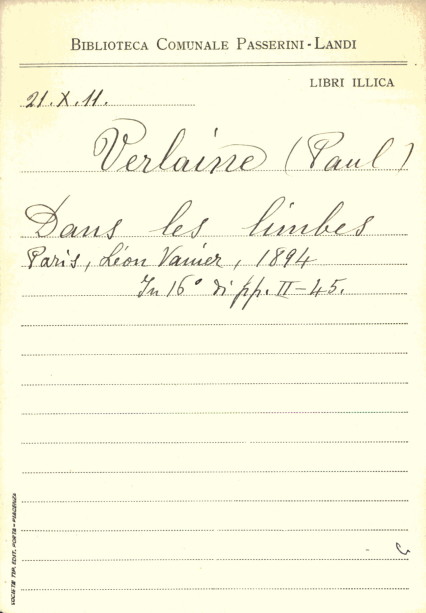 BIBLIOTECA COMUNALE PASSERINI-LANDI
LIBRI ILLICA
21.X.11.
Verlaine (Paul)
Dans les limbes
Paris, Léon Vanier, 1894
In 16° di pp. II-45.
SOCIETÀ TIP. EDIT. PORTA-PIACENZA